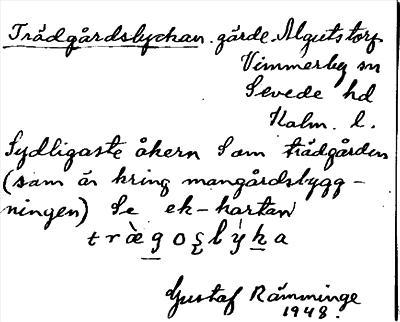 Trädgårdslyckan. gärde. Algutstorp
Vimmerby sn
Sevede hd
Kalm. l.
Sydligaste åkern S om trädgården
(som är kring mangårdsbygg-
ningen) Se ek-kartan
træ̀goʂlýka
Gustaf Rämminge
1948.